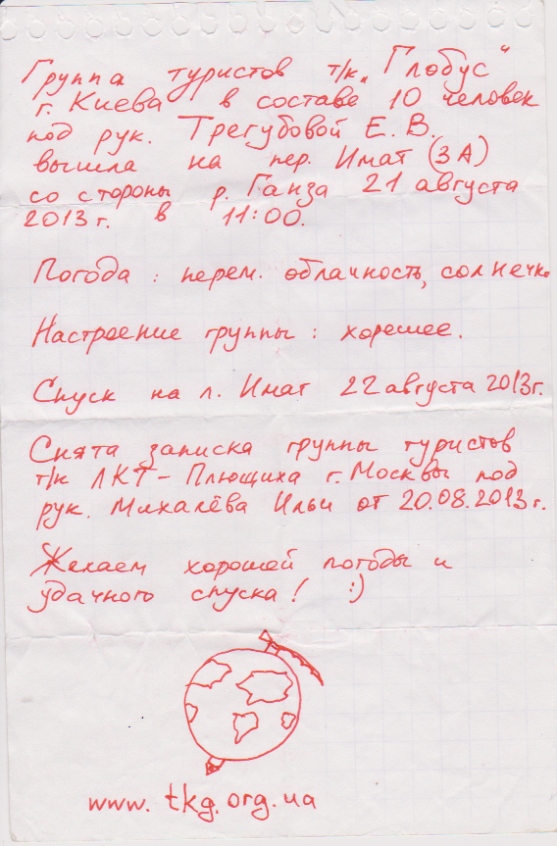 Группа туристов т/к „Глобус"
г. Киева в составе 10 человек
под рук. Трегубовой Е. В.
вышла на пер. Имат (3А)
со стороны р. Ганза 21 августа
2013 г. в 11:00.
Погода : перем. облачность, солнечно
Настроение группы : хорошее.
Спуск на л. Имат 22 августа 2013г.
Снята записка группы туристов
т/к ЛКТ - Плющиха г. Москвы под
рук. Михалёва Ильи от 20.08.2013 г.
Желаем хорошей погоды и
удачного спуска! :)
www. tkg.org.ua